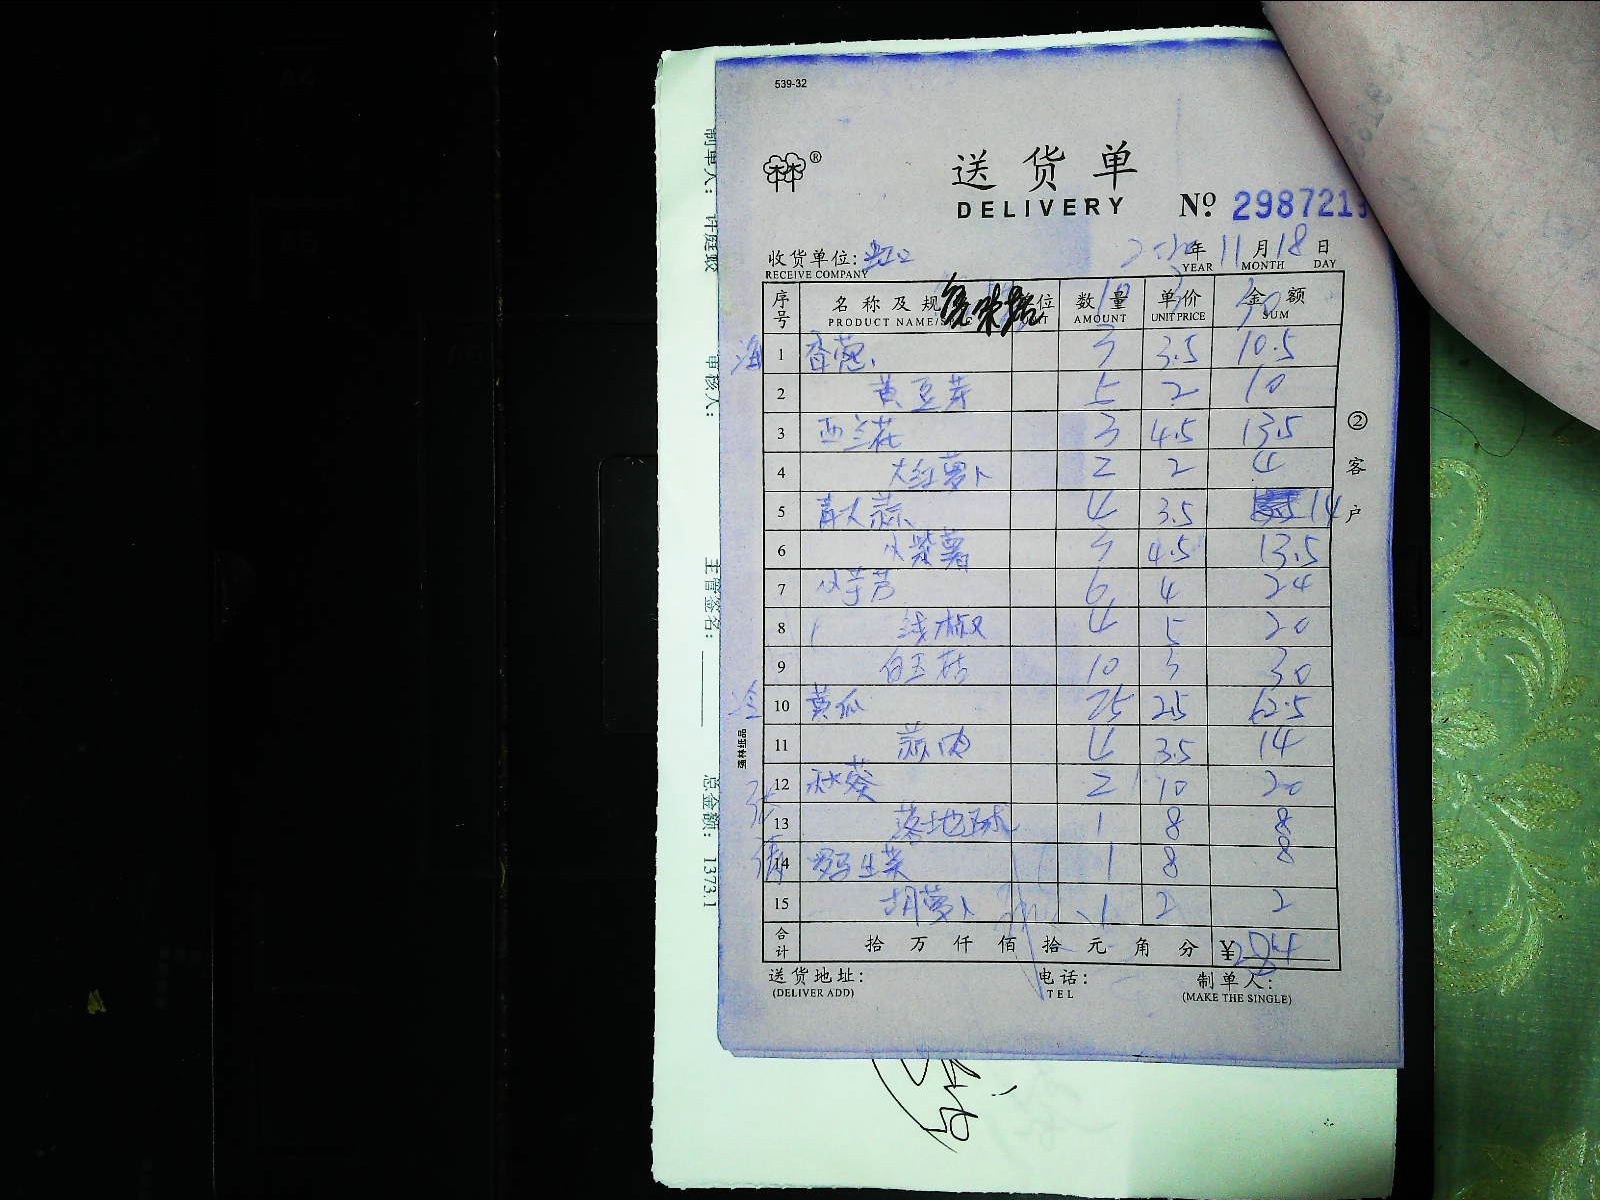 539-32
®
送货单
DELIVERY
Nº 2987219
收货单位: 虹口
RECEIVE COMPANY
2020年 11月 18日
YEAR MONTH DAY
序号 名称及规 位 数量 单价 金额
PRODUCT NAME/ AMOUNT UNIT PRICE SUM
10 3 30
海 1 香葱 3 3.5 10.5
2 黄豆芽 5 2 10
3 西兰花 3 4.5 13.5
4 大红萝卜 2 2 4
5 青大蒜 4 3.5 14
6 小紫薯 3 4.5 13.5
7 小芋艿 6 4 24
8 线椒 4 5 20
9 白玉菇 10 3 30
冷 10 黄瓜 25 2.5 62.5
11 蒜肉 4 3.5 14
12 秋葵 2 10 20
13 落地球 1 8 8
14 罗马生菜 1 8 8
15 胡萝卜 1 2 2
合计 拾 万 仟 佰 拾 元 角 分 ¥284
送货地址: 电话: 制单人:
(DELIVER ADD) TEL (MAKE THE SINGLE)
②客户
强林纸品
制单人: 许庭姣
审核人:
主管签名:
总金额: 1373.1